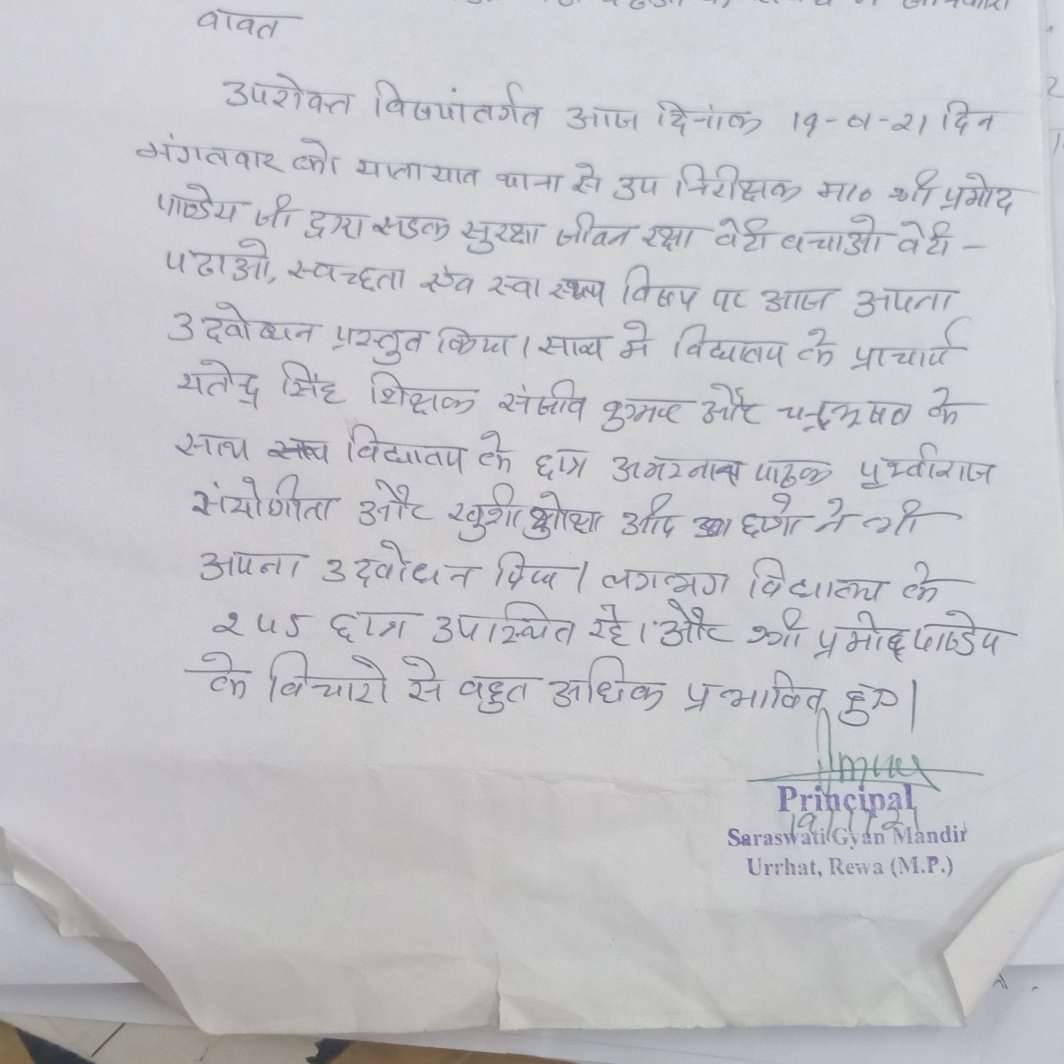 वावत
उपरोक्त विषयांतर्गत आज दिनांक 19-01-21 दिन
मंगलवार को यातायात थाना से उप निरीक्षक मा० श्री प्रमोद
पाण्डेय जी द्वारा सडक सुरक्षा जीवन रक्षा वेटी वचाओ वेटी -
पढाओ, स्वच्छता एंव स्वास्थ्य विषय पर आज अपना
उदवोधन प्रस्तुत किया। साथ मे विद्यालय के प्राचार्य
यतेन्द्र सिंह शिक्षक संजीव कुमार और चन्द्रभूषण के
साथ विद्यालय के छात्र अमरनाथ पाठक पृथ्वीराज
संयोगीता और खुशी आदि छात्रो ने भी
अपना उदवोधन दिया। लगभग विद्यालय के
245 छात्र उपस्थित रहे। और श्री प्रमोद पाण्डेय
के विचारो से वहुत अधिक प्रभावित हुए।
Principal
19/1/21
Saraswati Gyan Mandir
Urrhat, Rewa (M.P.)